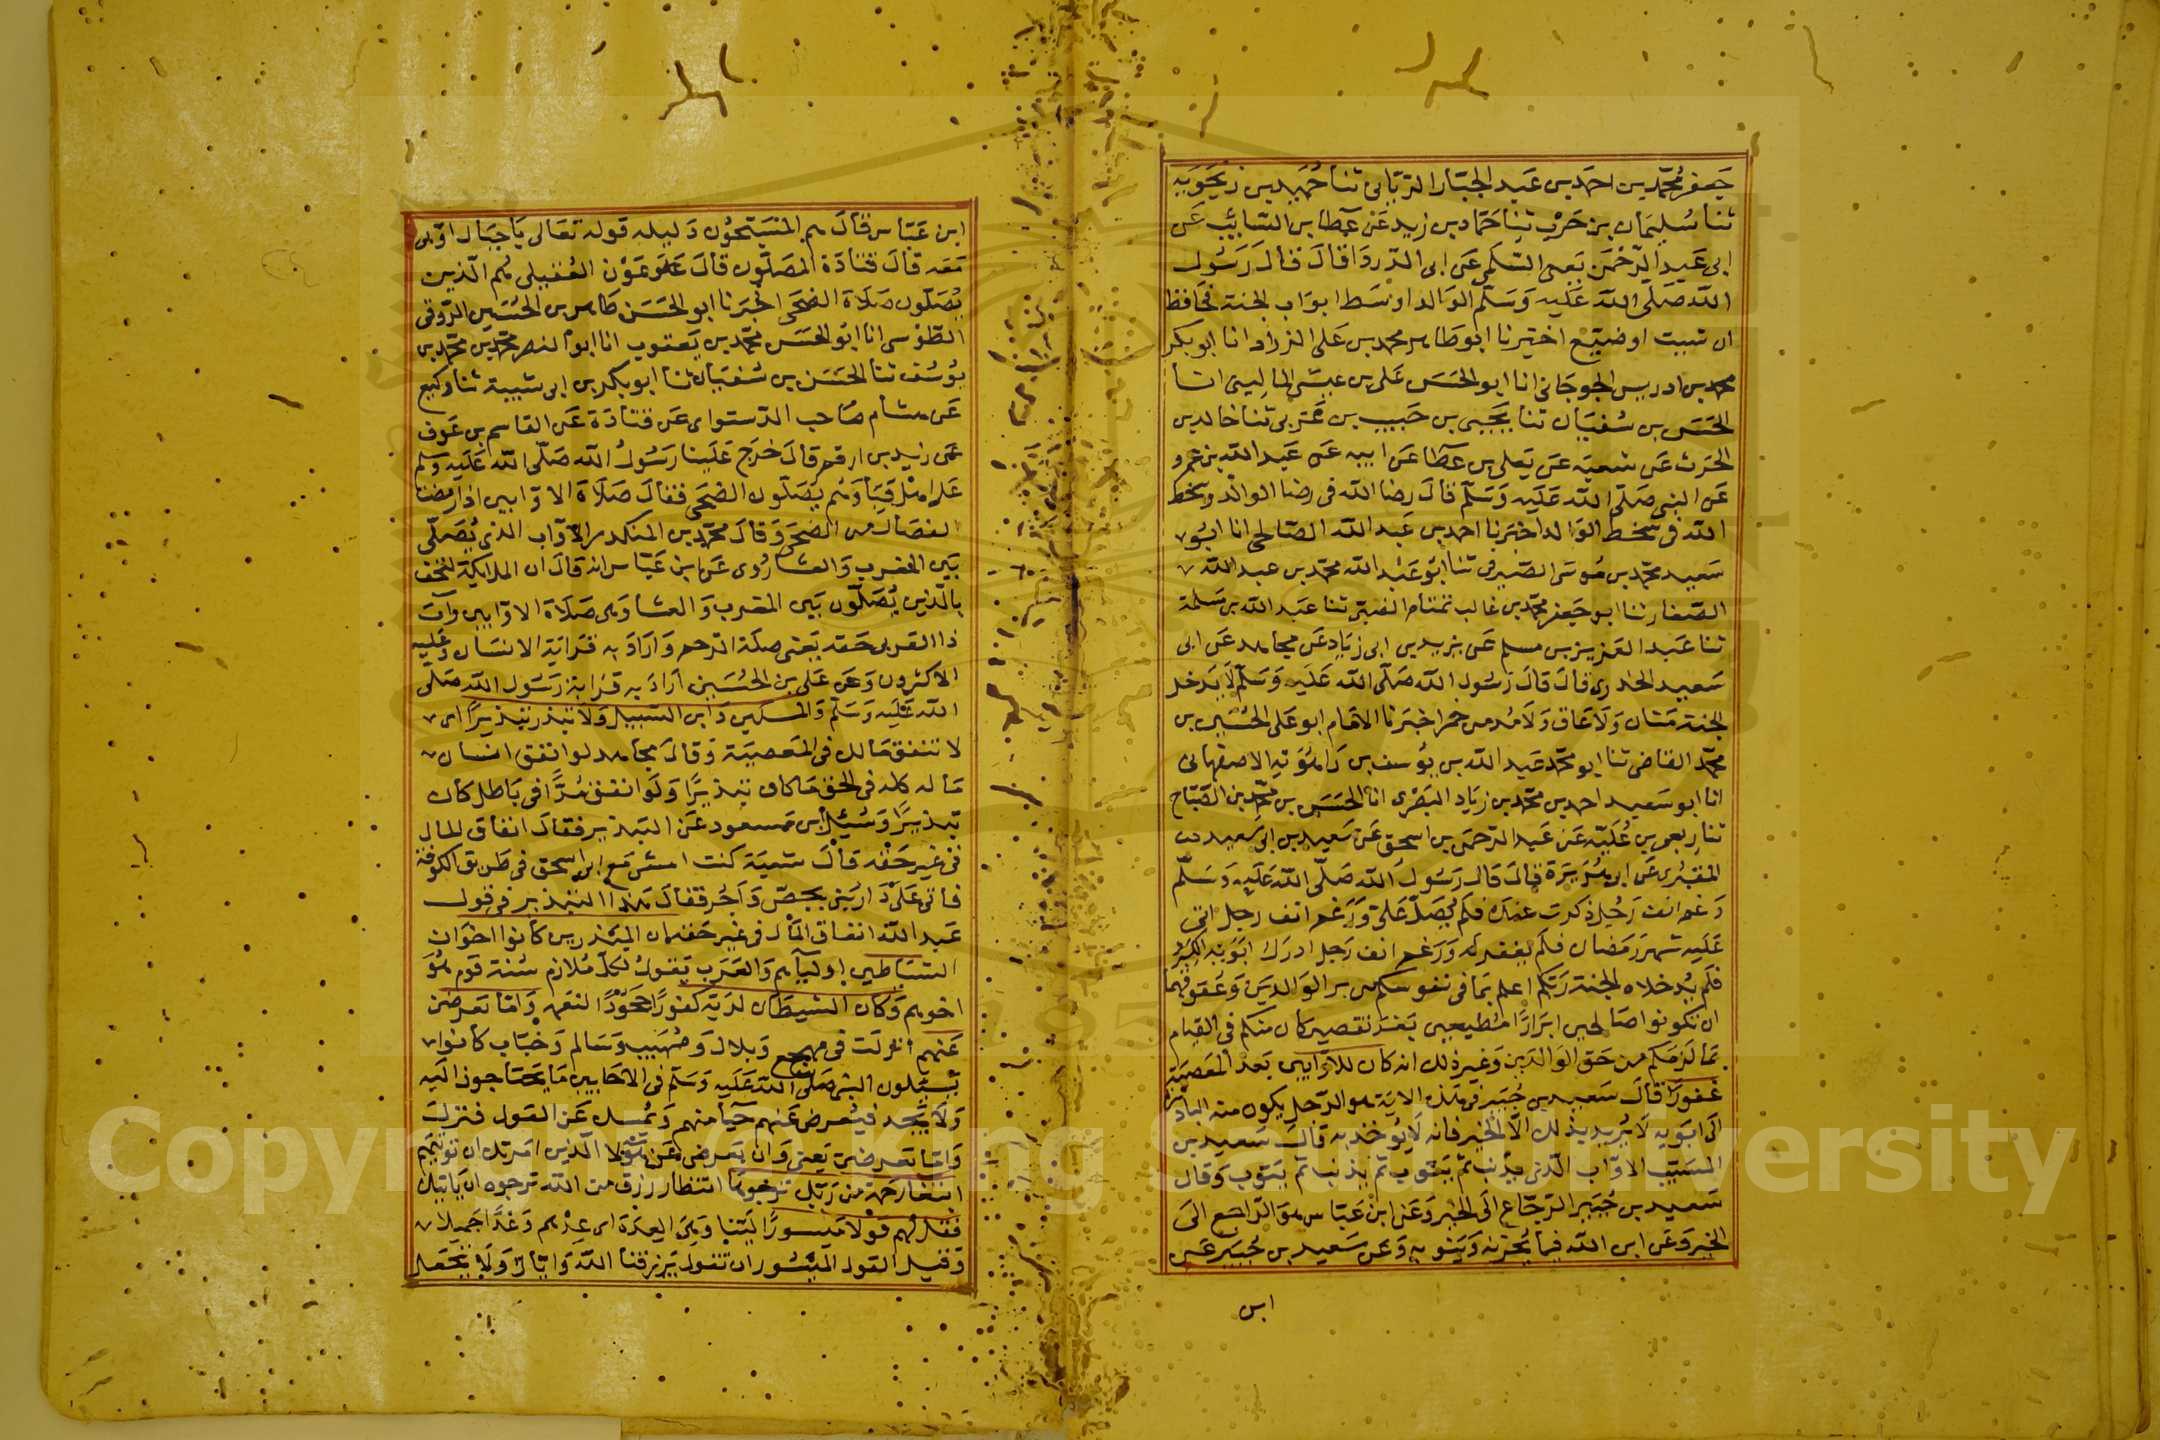 جعفر محمد بن احمد بن عبد الجبار الرياني ثنا حميد بن زنجويه
ثنا سليمان بن حرب ثنا حماد بن زيد عن عطا بن السائب عن
ابى عبد الرحمن يعنى السلمى عن ابى الدردا قال قال رسول
الله صلى الله عليه وسلم الوالد اوسط ابواب الجنة فحافظ
ان شيت او ضيع اخبرنا ابو طاهر محمد بن على الزراد انا ابو بكر
محمد بن ادريس الجرجاني انا ابو الحسن على بن عيسى الماليني انا
الحسن بن سفيان ثنا يحيى بن حبيب بن عربى ثنا خالد بن
الحرث عن شعبة عن يعلى بن عطا عن ابيه عن عبد الله بن عمرو
عن النبى صلى الله عليه وسلم قال رضا الله فى رضا الوالد وسخط
الله فى سخط الوالد اخبرنا احمد بن عبد الله الصالحى انا ابو
سعيد محمد بن موسى الصيرفى ثنا ابو عبد الله محمد بن عبد الله
الصفار ثنا ابو جعفر محمد بن غالب تمتام الضبى ثنا عبد الله بن مسلمة
ثنا عبد العزيز بن مسلم عن يزيد بن ابى زياد عن مجاهد عن ابى
سعيد الخدرى قال قال رسول الله صلى الله عليه وسلم لا يدخل
الجنة منان ولا عاق ولا مدمن خمر اخبرنا الامام ابو على الحسين بن
محمد القاضى ثنا ابو محمد عبد الله بن يوسف بن بامويه الاصفهانى
انا ابو سعيد احمد بن محمد بن زياد البصرى انا الحسن بن محمد بن الصباح
ثنا ربعى بن علية عن عبد الرحمن بن اسحق عن سعيد بن ابى سعيد
المقبرى عن ابى هريرة قال قال رسول الله صلى الله عليه وسلم
رغم انف رجل ذكرت عنده فلم يصل على ورغم انف رجل اتى
عليه شهر رمضان فلم يغفر له ورغم انف رجل ادرك ابويه الكبر
فلم يدخلاه الجنة ربكم اعلم بما فى نفوسكم من بر الوالدين وعقوقهما
ان تكونوا صالحين ابرارا مطيعين بعد تقصير كان منكم فى القيام
بما لزمكم من حق الوالدين وغير ذلك انه كان للاوابين بعد المعصية
غفورا قال سعيد بن جبير فى هذه الاية هو الرجل يكون منه البادرة
الى ابويه لا يريد بذلك الا الخير فانه لا يؤخذ به قال سعيد بن
المسيب الاواب الذى يذنب ثم يتوب ثم يذنب ثم يتوب وقال
سعيد بن جبير الرجاع الى الخير وعن ابن عباس هو الراجع الى
الخير وعن ابن الله فيما يحزنه وينوبه وعن سعيد بن جبير عن
ابن
ابن عباس قال هم المسبحون دليله قوله تعالى يا جبال اوبى
معه قال قتادة المصلون قال عون العقيلى هم الذين
يصلون صلاة الضحى اخبرنا ابو الحسن طاهر بن الحسين الروقى
الطوسى انا ابو الحسن محمد بن يعقوب انا ابو النصر محمد بن محمد بن
يوسف ثنا الحسن بن سفيان ثنا ابو بكر بن ابى شيبة ثنا وكيع
عن هشام صاحب الدستواى عن قتادة عن القاسم بن عوف
عن زيد بن ارقم قال خرج علينا رسول الله صلى الله عليه وسلم
على اهل قبا وهم يصلون الضحى فقال صلاة الاوابين اذا رمضت
الفصال من الضحى وقال محمد بن المنكدر الاواب الذى يصلى
بين المغرب والعشا روى عن ابن عباس انه قال ان الملائكة لتحف
بالذين يصلون بين المغرب والعشا وهى صلاة الاوابين وآت
ذا القربى حقه يعنى صلة الرحم واراد به قرابة الانسان وعليه
الاكثرون وعن على بن الحسين اراد به قرابة رسول الله صلى
الله عليه وسلم والمسكين وابن السبيل ولا تبذر تبذيرا اى
لا تنفق مالك فى المعصية وقال مجاهد لو انفق انسان
ماله كله فى الحق ما كان تبذيرا ولو انفق مدا فى باطل كان
تبذيرا وسئل ابن مسعود عن التبذير فقال انفاق المال
فى غير حقه قال شعبة كنت امشى مع ابى اسحق فى طريق الكوفة
فاتى على دار تبنى بجص واجر فقال هذا التبذير فى قول
عبد الله انفاق المال فى غير حقه ان المبذرين كانوا اخوان
الشياطين اولياهم والعرب يقول لكل ملازم سنة قوم هو
اخوهم وكان الشيطان لربه كفورا جحودا لنعمه واما تعرضن
عنهم نزلت فى مهجع وبلال وصهيب وسالم وخباب كانوا
يسئلون النبى صلى الله عليه وسلم فى الاحايين ما يحتاجون اليه
ولا يجد فيعرض عنهم حيا منهم ويمسك عن القول فنزلت
واما تعرضن يعنى وان تعرض عن هولا الذين امرتك ان توتيهم
ابتغا رحمة من ربك ترجوها انتظار رزق من الله ترجوه ان ياتيك
فقل لهم قولا ميسورا لينا وهى العدة اى عدهم وعدا جميلا
وقيل القول الميسور ان تقول يرزقنا الله واياك ولا تجعل
Copyright © King Saud University